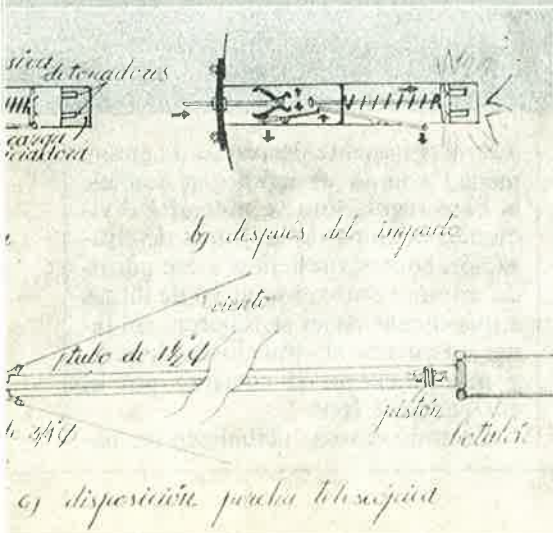 detonadores
carga
b) después del impacto
viento
tubo de 1½"φ
pistón
de 3/4"φ
c) disposición percha telescópica